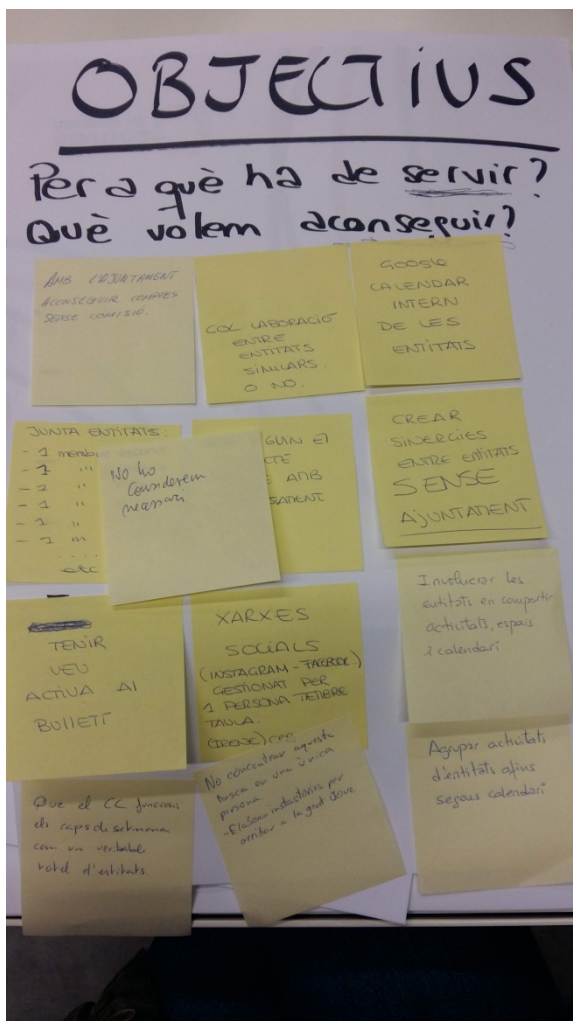 OBJECTIUS
Per a què ha de servir?
Què volem aconseguir?
AMB L'AJUNTAMENT
ACONSEGUIR COMPRES
SENSE COMISIÓ.
COL·LABORACIÓ
ENTRE
ENTITATS
SIMILARS.
O NO.
GOOGLE
CALENDAR
INTERN
DE LES
ENTITATS
JUNTA ENTITATS:
- 1 membre
- 1 "
- 2 "
- 1 "
- 1 "
- 1 m
.....
etc
No ho
Considerem
necessari
GUIN EL
CTE
E AMB
TAMENT
CREAR
SINERGIES
ENTRE ENTITATS
SENSE
AJUNTAMENT
TENIR
VEU
ACTIVA Al
BUlletí
XARXES
SOCIALS
(INSTAGRAM - FACEBOOK..)
GESTIONAT PER
1 PERSONA
TAULA.
(IRENE)
Involucrar les
entitats en compartir
activitats, espais
i calendari
Que el CC funcioni
els caps de setmana
com un veritable
hotel d'entitats.
No concentrar aquesta
tasca en una única
persona
- Elaborar instastories per
arribar a la gent jove
Agrupar activitats
d'entitats afins
segons calendari